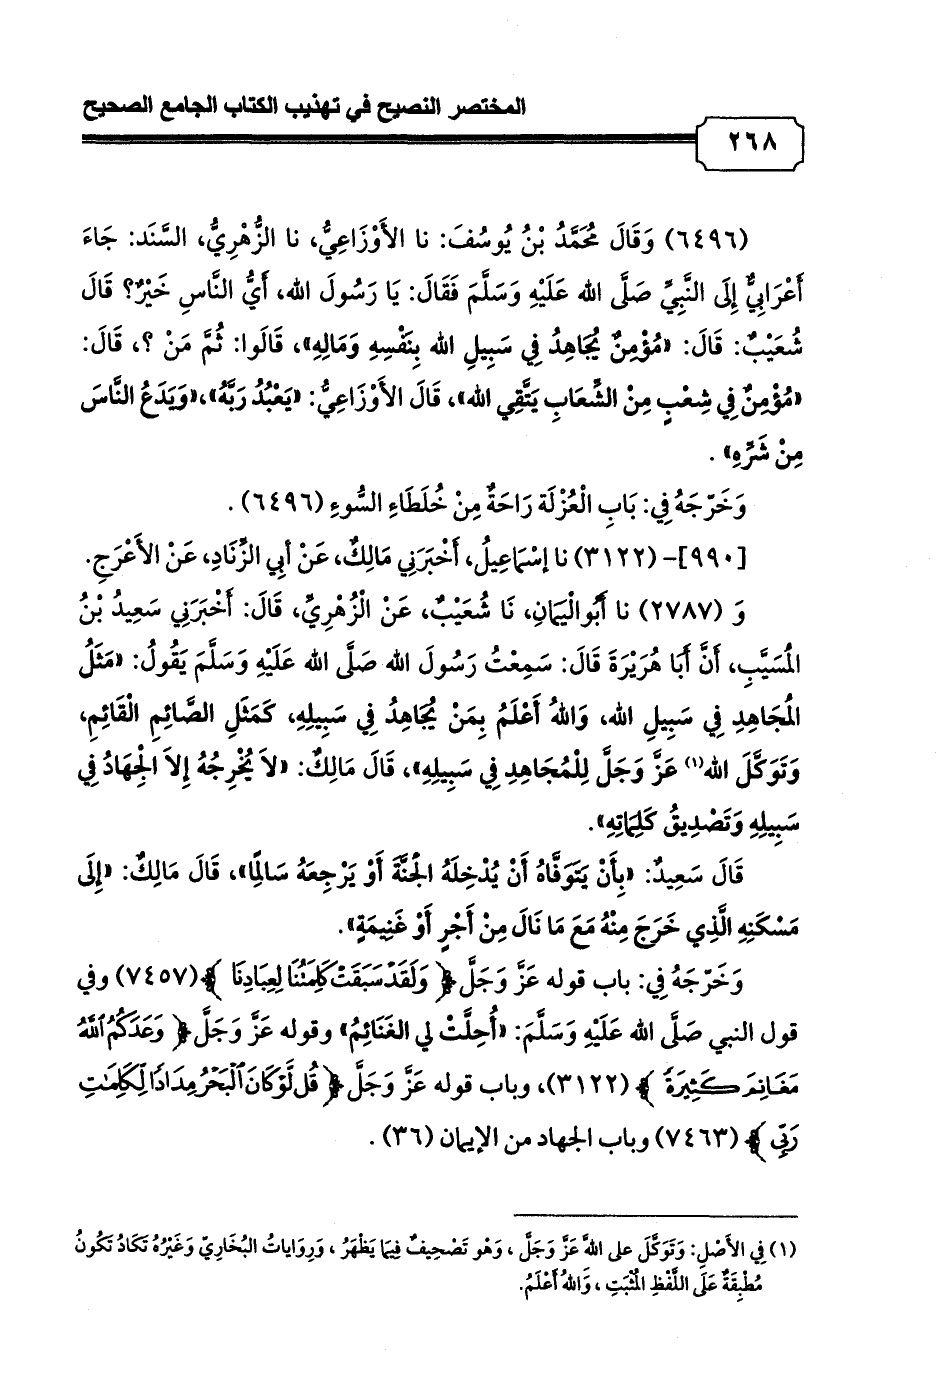 المختصر النصيح في تهذيب الكتاب الجامع الصحيح
٢٦٨
(٦٤٩٦) وَقَالَ مُحَمَّدُ بْنُ يُوسُفَ: نا الأَوْزَاعِيُّ، نا الزُّهْرِيُّ، السَّنَد: جَاءَ
أَعْرَابِيٌّ إِلَى النَّبِيِّ صَلَّى الله عَلَيْهِ وَسَلَّمَ فَقَالَ: يَا رَسُولَ الله، أَيُّ النَّاسِ خَيْرٌ؟ قَالَ
شُعَيْبٌ: قَالَ: «مُؤْمِنٌ يُجَاهِدُ فِي سَبِيلِ الله بِنَفْسِهِ وَمَالِهِ»، قَالُوا: ثُمَّ مَنْ ؟، قَالَ:
«مُؤْمِنٌ فِي شِعْبٍ مِنْ الشِّعَابِ يَتَّقِي الله»، قَالَ الأَوْزَاعِيُّ: «يَعْبُدُ رَبَّهُ»،«وَيَدَعُ النَّاسَ
مِنْ شَرِّهِ» .
وَخَرّجَهُ فِي: بَابِ الْعُزْلَة رَاحَةٌ مِنْ خُلَطَاءِ السُّوءِ (٦٤٩٦).
[٩٩٠]- (٣١٢٢) نا إِسْمَاعِيلُ، أَخْبَرَنِي مَالِكٌ، عَنْ أبِي الزِّنَادِ، عَنْ الأَعْرَجِ.
وَ (٢٧٨٧) نا أَبُوالْيَمَانِ، نَا شُعَيْبٌ، عَنْ الزُهْرِيِّ، قَالَ: أَخْبَرَنِي سَعِيدُ بْنُ
الْمُسَيَّبِ، أَنَّ أَبَا هُرَيْرَةَ قَالَ: سَمِعْتُ رَسُولَ الله صَلَّى الله عَلَيْهِ وَسَلَّمَ يَقُولُ: «مَثَلُ
الْمُجَاهِدِ فِي سَبِيلِ الله، وَاللهُ أَعْلَمُ بِمَنْ يُجَاهِدُ فِي سَبِيلِهِ، كَمَثَلِ الصَّائِمِ الْقَائِمِ،
وَتَوَكَّلَ الله(١) عَزَّ وَجَلَّ لِلْمُجَاهِدِ فِي سَبِيلِهِ»، قَالَ مَالِكٌ: «لاَ يُخْرِجُهُ إِلاَ الْجِهَادُ فِي
سَبِيلِهِ وَتَصْدِيقُ كَلِمَاتِهِ».
قَالَ سَعِيدٌ: «بِأَنْ يَتَوَفَّاهُ أَنْ يُدْخِلَهُ الْجَنَّةَ أَوْ يَرْجِعَهُ سَالِمًا»، قَالَ مَالِكٌ: «إِلَى
مَسْكَنِهِ الَّذِي خَرَجَ مِنْهُ مَعَ مَا نَالَ مِنْ أَجْرٍ أَوْ غَنِيمَةٍ».
وَخَرّجَهُ فِي: باب قوله عَزَّ وَجَلَّ ﴿ وَلَقَدْ سَبَقَتْ كَلِمَتُنَا لِعِبَادِنَا ﴾ (٧٤٥٧) وفي
قول النبي صَلَّى الله عَلَيْهِ وَسَلَّمَ: «أُحِلَّتْ لي الغَنَائِمُ» وقوله عَزَّ وَجَلَّ ﴿ وَعَدَكُمُ ٱللَّهُ
مَغَانِمَ كَثِيرَةً ﴾ (٣١٢٢)، وباب قوله عَزَّ وَجَلَّ ﴿ قُل لَّوْ كَانَ ٱلْبَحْرُ مِدَادًا لِّكَلِمَٰتِ
رَبِّي ﴾ (٧٤٦٣) وباب الجهاد من الإيمان (٣٦) .
(١) فِي الأَصْلِ: وَتَوَكَّلَ على اللهِ عَزَّ وَجَلَّ ، وَهْو تَصْحِيفٌ فِيمَا يَظْهَرُ ، وَرِوَايَاتُ البُخَارِيّ وَغَيْرُهُ تَكَادُ تَكُونُ
مُطْبِقَةٌ عَلَى اللَّفْظِ الْمُثْبَتِ ، وَاللهُ أَعْلَمُ.